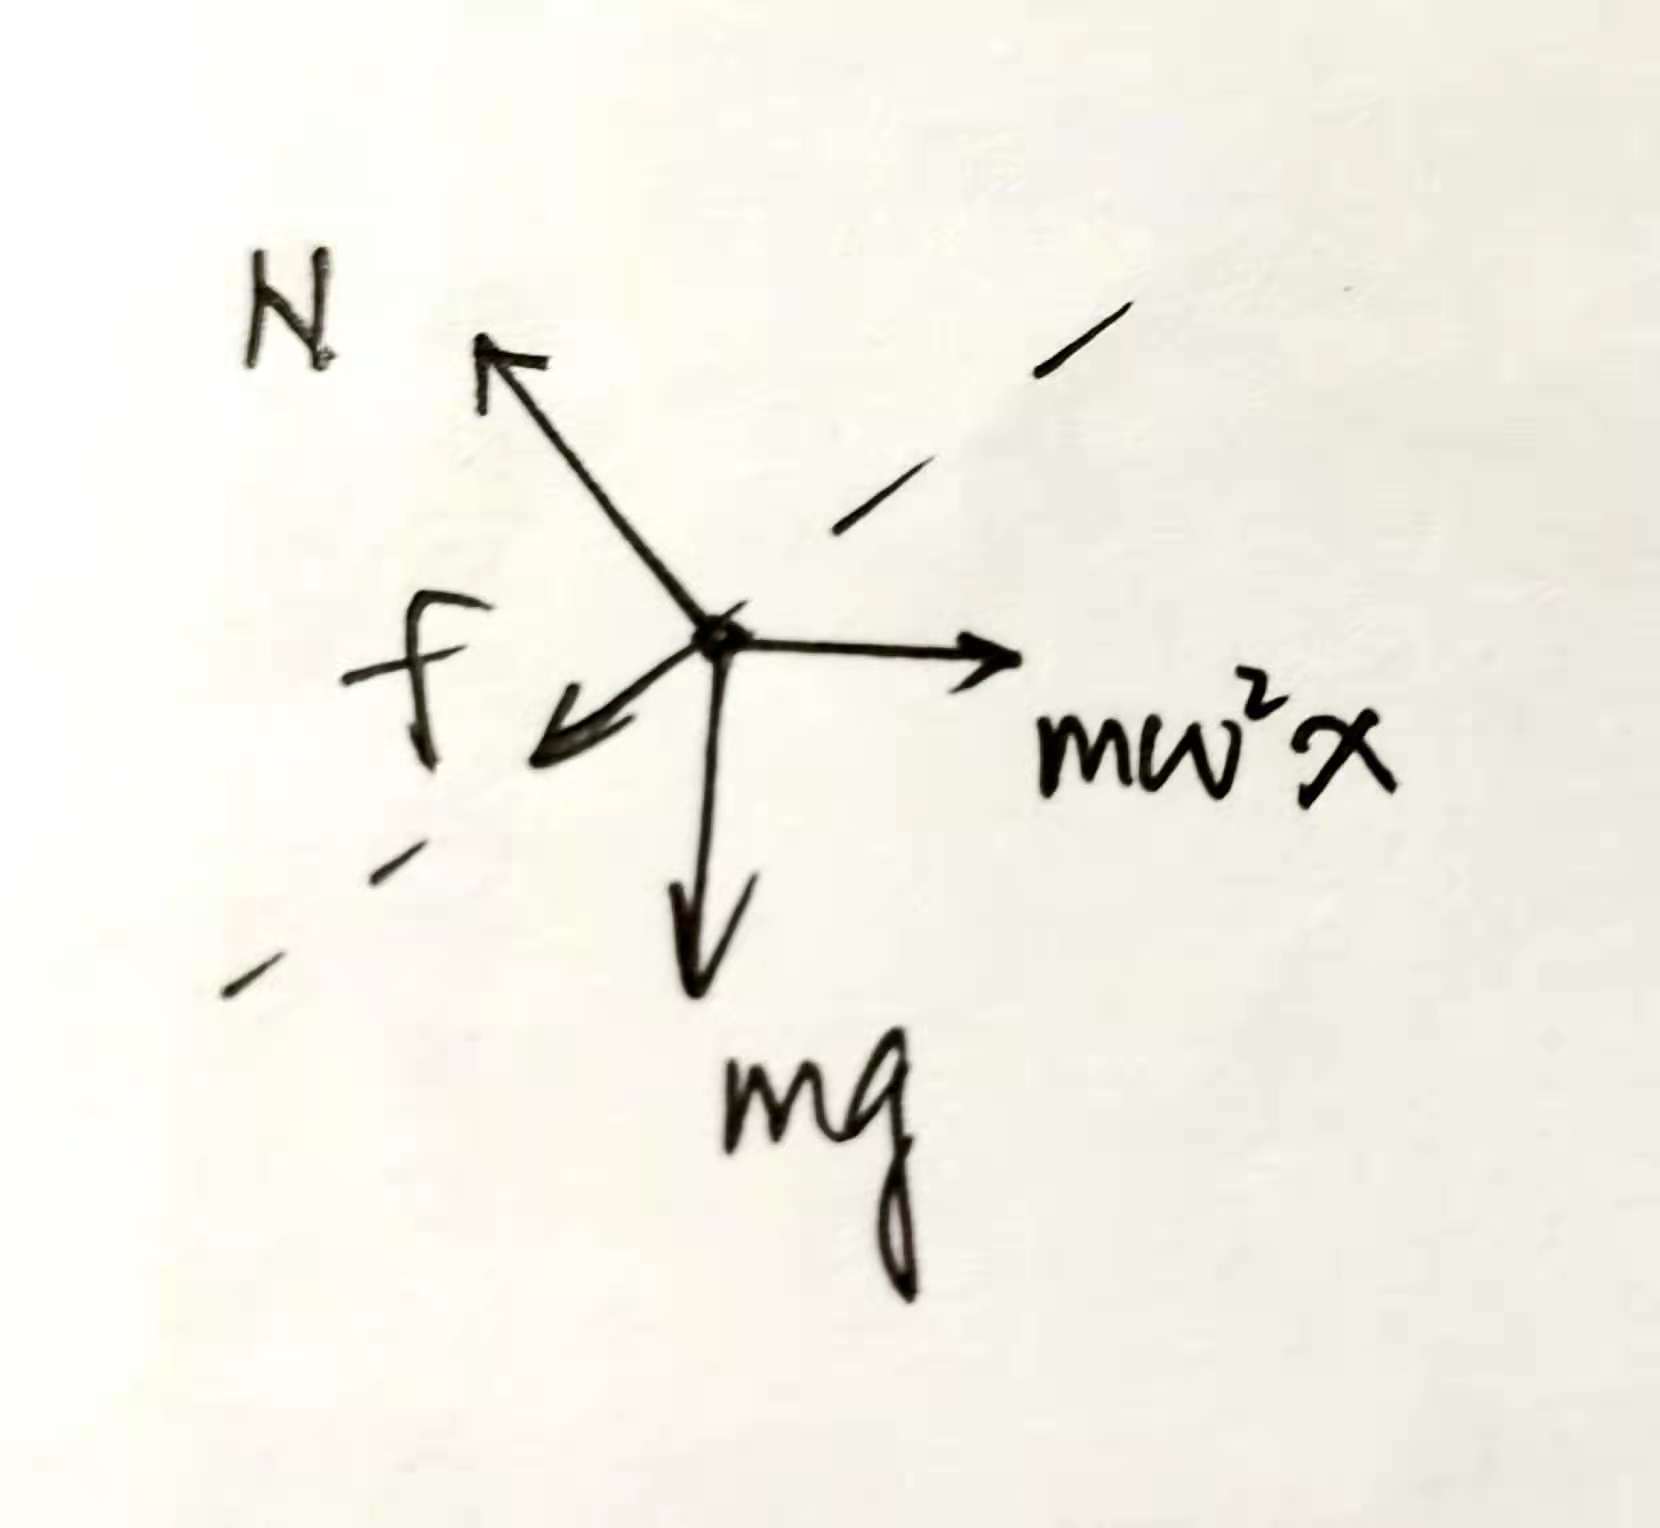 N
f
mω²x
mg